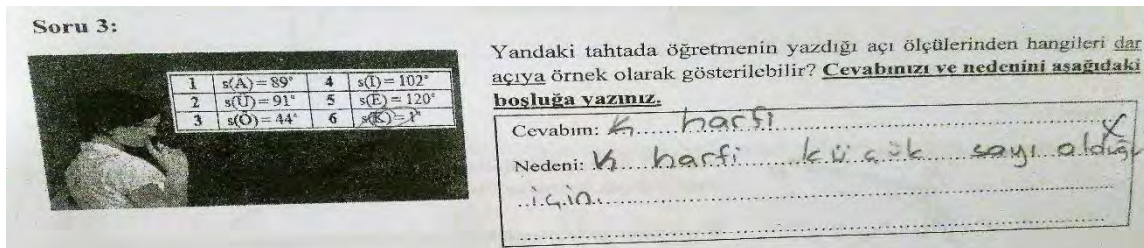 Soru 3:
1 s(A) = 89° 4 s(I) = 102°
2 s(Ü) = 91° 5 s(E) = 120°
3 s(Ö) = 44° 6 s(K) = 1°
Yandaki tahtada öğretmenin yazdığı açı ölçülerinden hangileri dar
açıya örnek olarak gösterilebilir? Cevabınızı ve nedenini aşağıdaki
boşluğa yazınız.
Cevabım: K harfi
Nedeni: K harfi küçük sayı olduğu
için